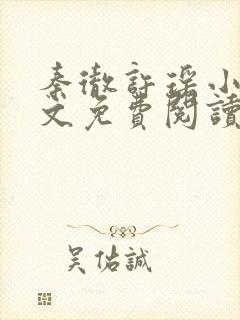 秦徹許瑤小
文免費閱讀
吴佑誠